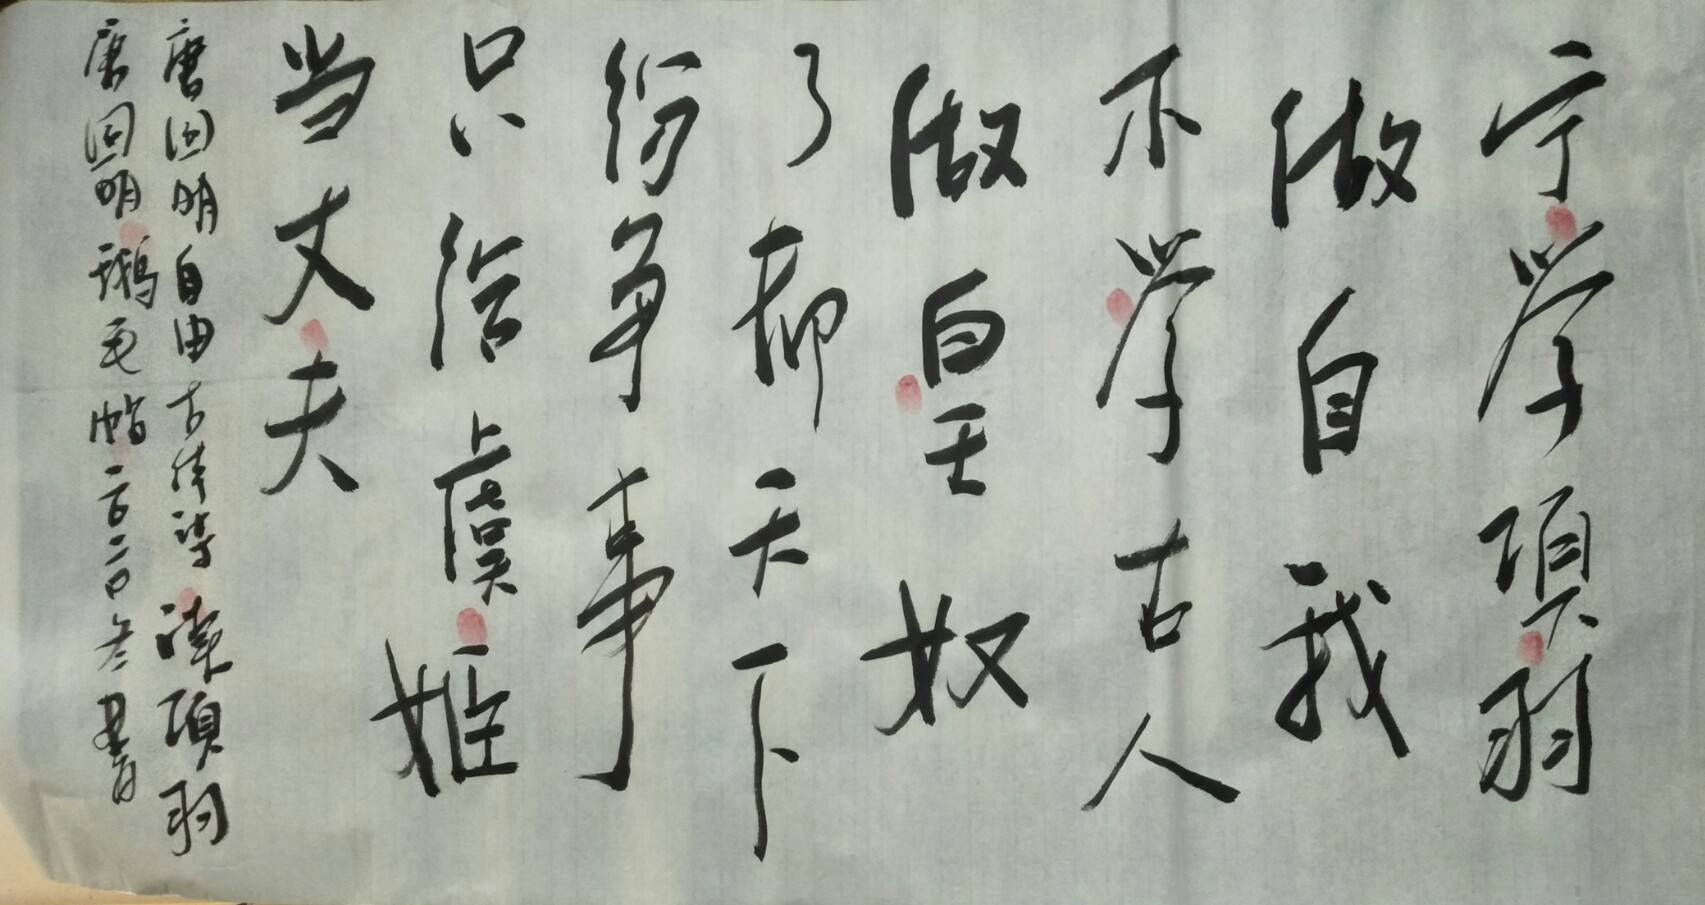 宁学項羽
做自我
不学古人
做皇王奴
了却天下
纷争事
只给虞姬
当丈夫
唐回明自由古体诗 读項羽
唐回明 鵝毛帖 二〇二〇年 書